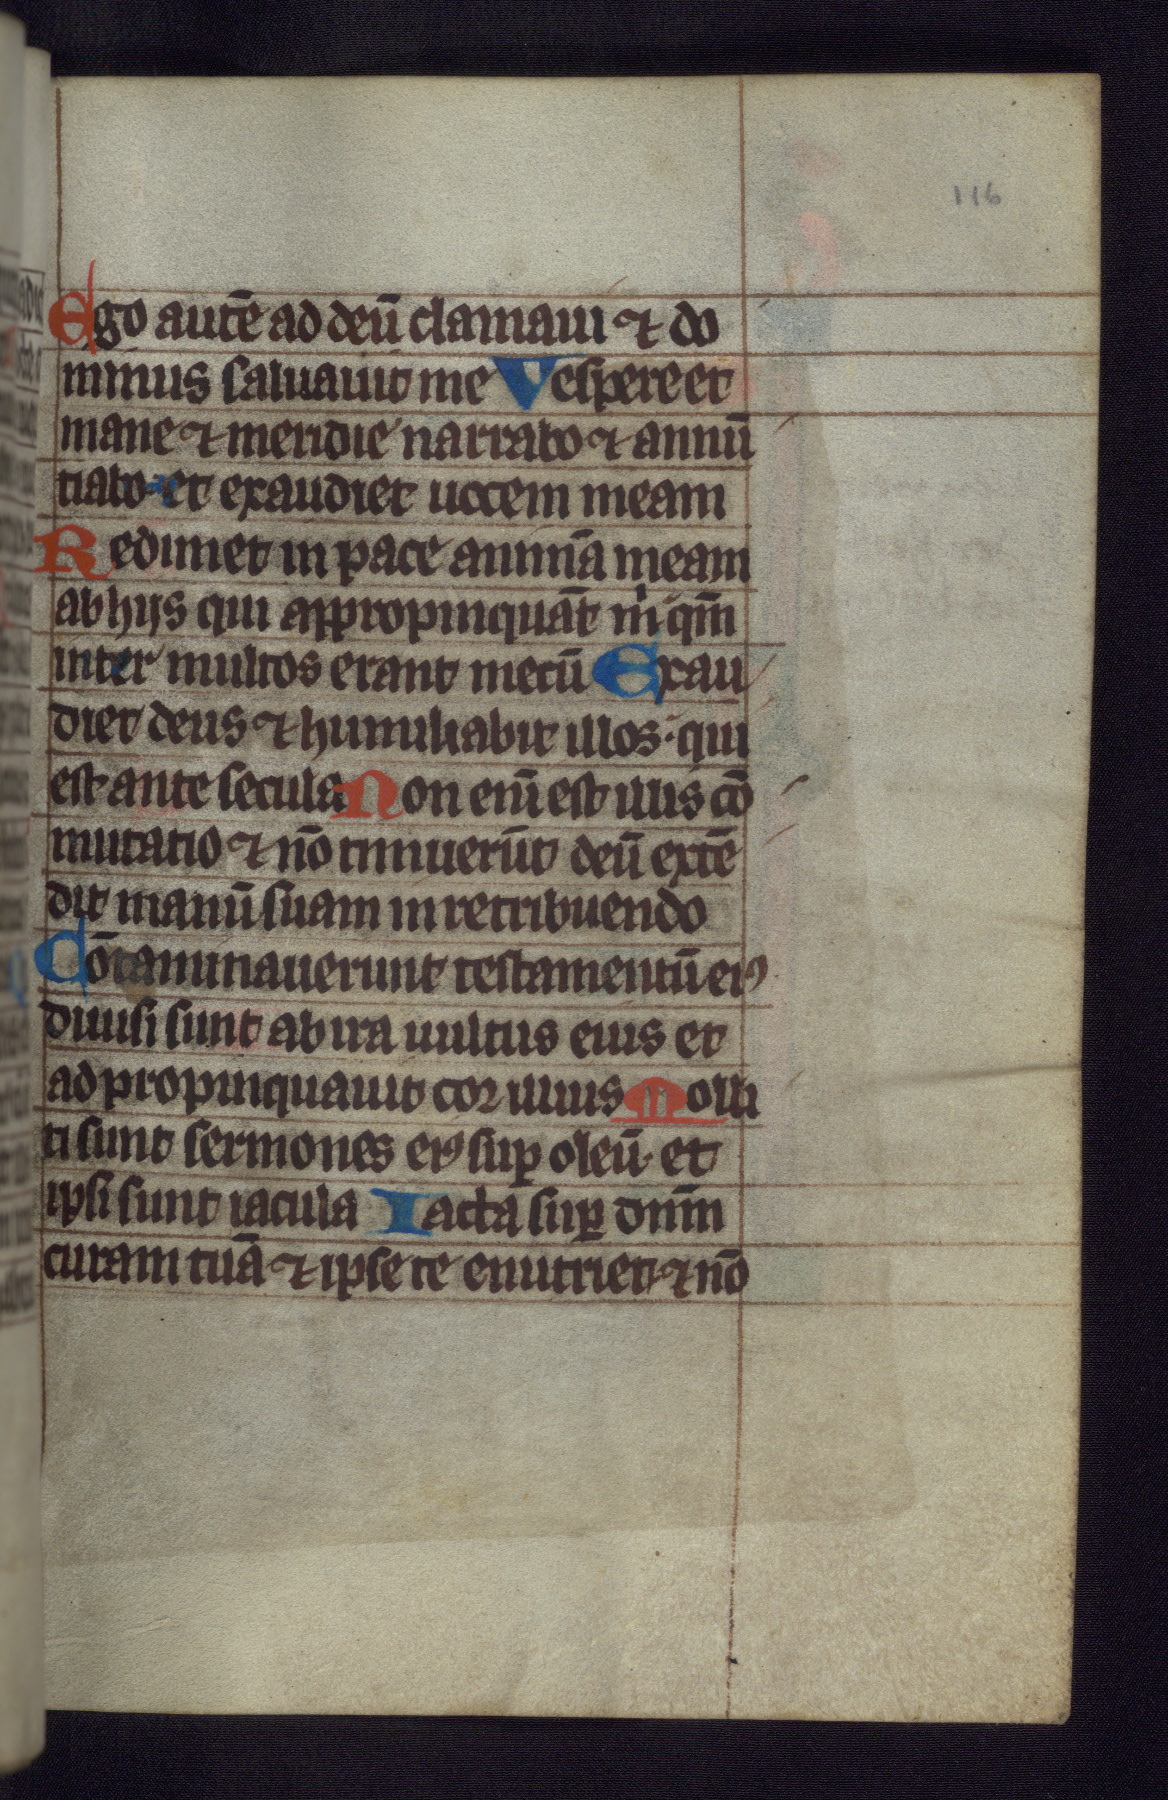 116
Ego autē ad deū clamaui ⁊ do
minus saluauit me Vespere et
mane ⁊ meridie narrabo ⁊ annū
tiabo et exaudiet uocem meam
Redimet in pace animā meam
ab hijs qui appropinquāt m̄ qm̄
inter multos erant mecū Exau
diet deus ⁊ humiliabit illos · qui
est ante secula Non eni̅ est illis cō
mutatio ⁊ nō timuerūt deū extē
dit manū suam in retribuendo
Cōtaminauerunt testamentū eiꝰ
diuisi sunt ab ira uultus eius et
ad propinquauit cor illius Molli
ti sunt sermones eiꝰ suꝑ oleū · et
ipsi sunt iacula Iacta suꝑ dnm̄
curam tuā ⁊ ipse te enutriet · ⁊ nō